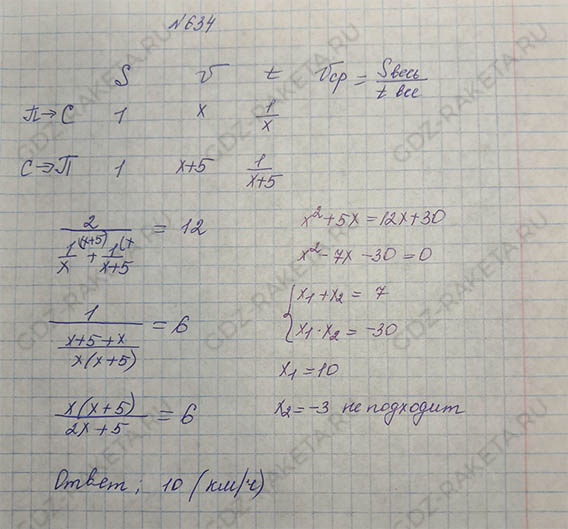 №634
S v t Vср = Sвесь / t все
П→С 1 x 1/x
С→П 1 x+5 1/(x+5)
2 / (1/x (x+5) + 1/(x+5) (x) = 12
1 / ((x+5+x) / (x(x+5))) = 6
x(x+5) / (2x+5) = 6
x²+5x = 12x+30
x²-7x-30=0
{ x₁+x₂ = 7
x₁·x₂ = -30
x₁ = 10
x₂ = -3 не подходит
Ответ: 10 (км/ч)
GDZ-RAKETA.RU